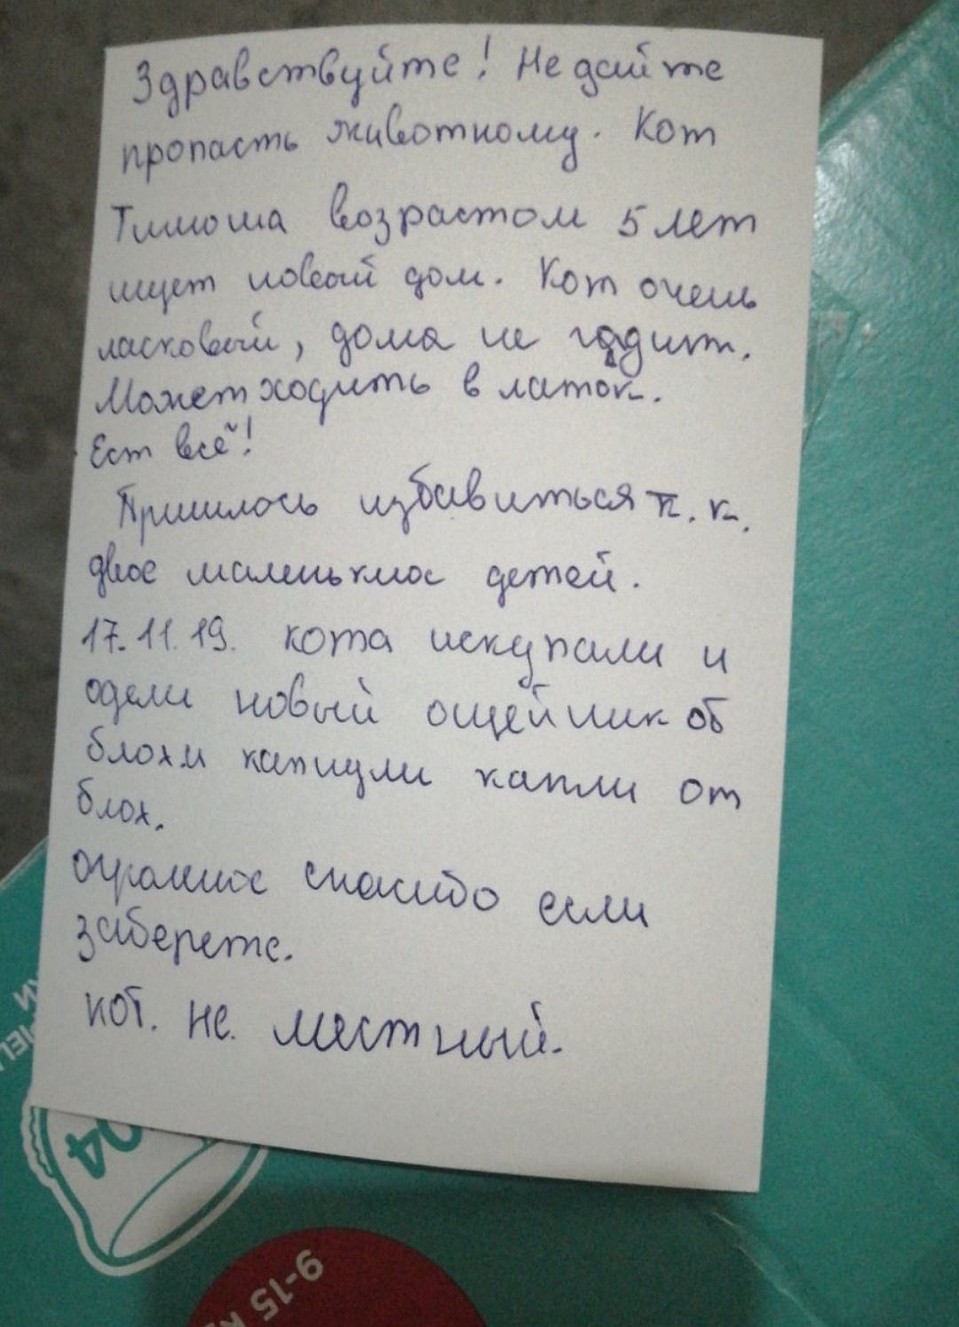 Здравствуйте! Не дайте
пропасть животному. Кот
Тимоша возрастом 5 лет
ищет новый дом. Кот очень
ласковый, дома не гадит.
Может ходить в латок.
Ест всё!
Пришлось избавиться т.к.
двое маленьких детей.
17.11.19. кота искупали и
одели новый ошейник об
блохи капнули капли от
блох.
огромное спасибо если
заберете.
кот. не. местный.
9-15 к